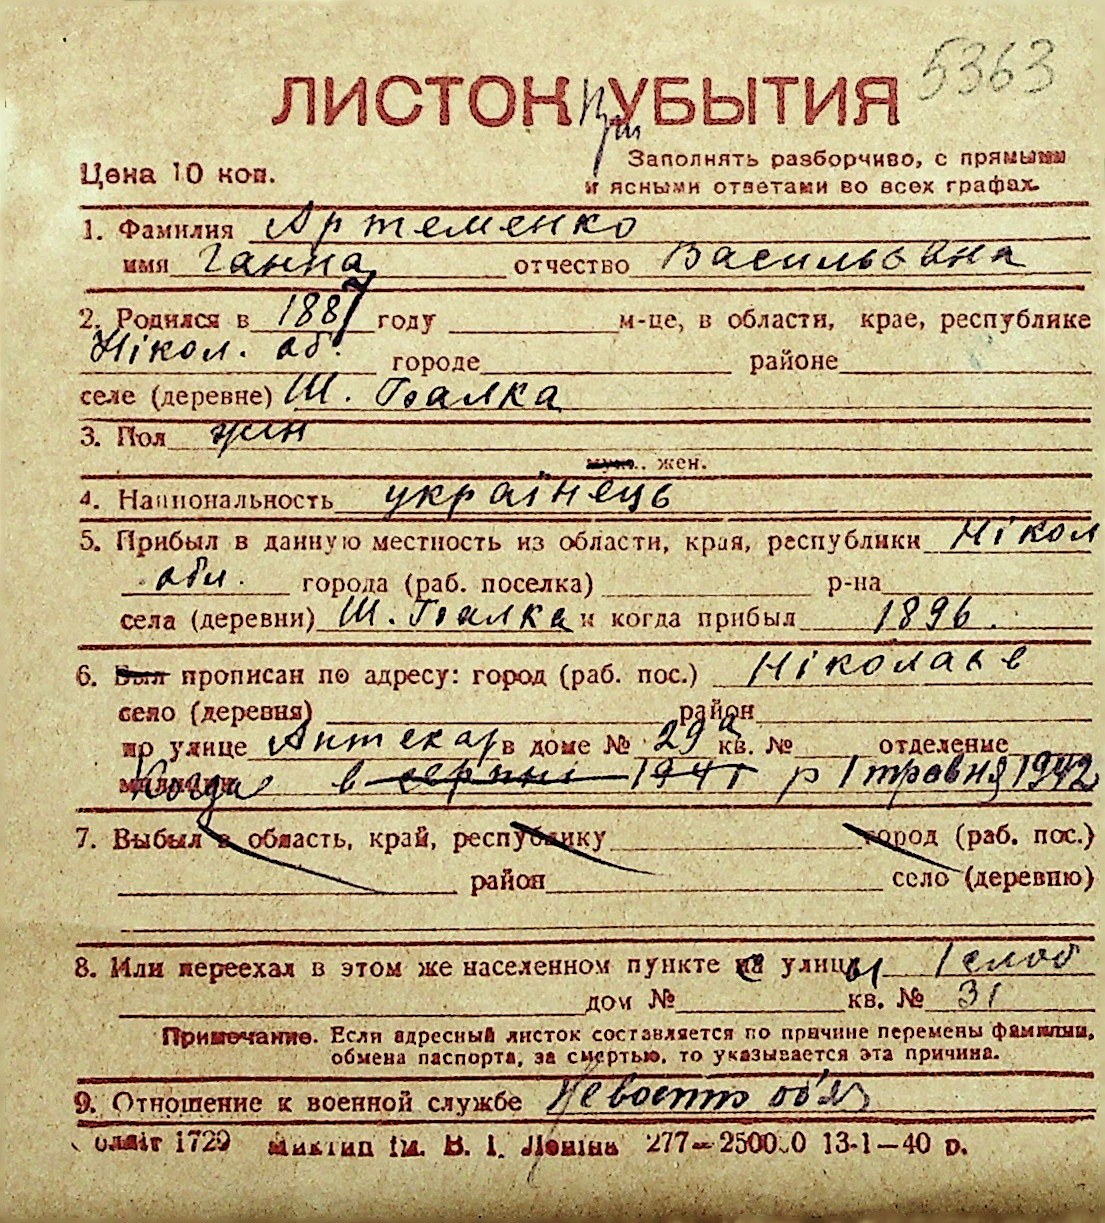 5363
ЛИСТОК УБЫТИЯ
При
Цена 10 коп.
Заполнять разборчиво, с прямыми
и ясными ответами во всех графах.
1. Фамилия Артеменко
имя Ганна отчество Васильовна
2. Родился в 1887 году м-це, в области, крае, республике
Нікол. об. городе районе
селе (деревне) Ш. Балка
3. Пол жін
муж. жен.
4. Национальность українець
5. Прибыл в данную местность из области, края, республики Нікол
обл. города (раб. поселка) р-на
села (деревни) Ш. Балка и когда прибыл 1896.
6. Был прописан по адресу: город (раб. пос.) Ніколаєв
село (деревня) район
по улице Аптекар в доме № 29а кв. № отделение
милиции Когда в серпні 1941 р 1 травня 1942
7. Выбыл в область, край, республику город (раб. пос.)
район село (деревню)
8. Или переехал в этом же населенном пункте с улицы 1 слоб
дом № кв. № 31
Примечание. Если адресный листок составляется по причине перемены фамилии,
обмена паспорта, за смертью, то указывается эта причина.
9. Отношение к военной службе об'яз
1729 Миктип ім. В. І. Леніна 277—250000 13-1—40 р.